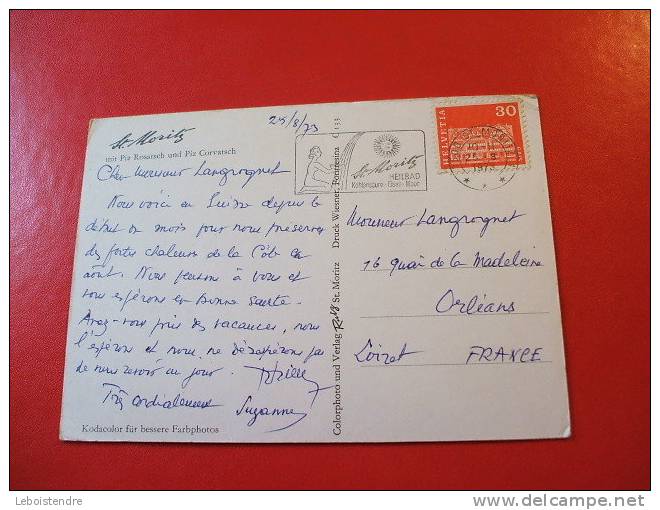 St. Moritz
mit Piz Rosatsch und Piz Corvatsch
25/8/73
Cher Monsieur Langrognet
Nous voici en Suisse depuis le
début du mois pour nous préserver
des fortes chaleurs de la Côte en
août. Nous pensons à vous et
vous espérons en bonne santé.
Avez-vous pris des vacances, nous
l'espérons et nous ne désespérons pas
de vous revoir un jour.
Très cordialement Suzanne
Kodacolor für bessere Farbphotos
Colorphoto und Verlag Rutz St. Moritz Druck Wiesner, Pontresina C 133
St. Moritz
HEILBAD
Kohlensäure-Eisen-Moor
HELVETIA
30
Monsieur Langrognet
16 quai de la Madeleine
Orléans
Loiret FRANCE
Leboistendre
www.delcampe.net